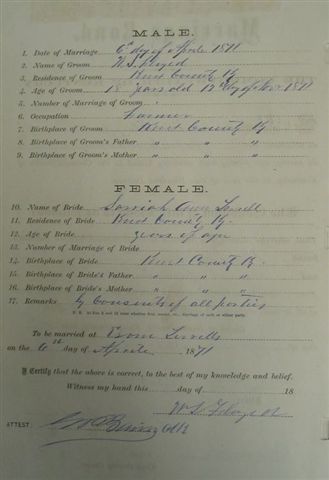 MALE.
1. Date of Marriage 6th day of Aprile 1871
2. Name of Groom W. S. Floyed
3. Residence of Groom Hart County Ky
4. Age of Groom 18 years old 12 day of Nov 1871
5. Number of Marriage of Groom
6. Occupation Farmer
7. Birthplace of Groom Hart County Ky
8. Birthplace of Groom's Father " " "
9. Birthplace of Groom's Mother " " "
FEMALE.
10. Name of Bride Ann
11. Residence of Bride Hart County Ky
12. Age of Bride years of age
13. Number of Marriage of Bride
14. Birthplace of Bride Hart County Ky
15. Birthplace of Bride's Father " " "
16. Birthplace of Bride's Mother " " "
17. Remarks by Consents of all parties
To be married at
on the 6th day of Aprile 1871
I Certify that the above is correct, to the best of my knowledge and belief.
Witness my hand this day of 18
W. S. Floyed
ATTEST. Clk